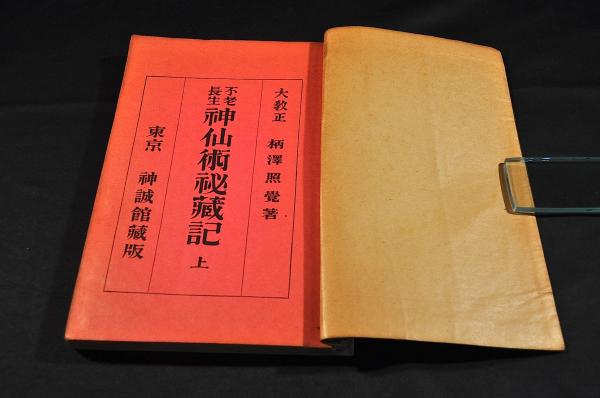 大教正　柄澤照覺著
不老長生
神仙術祕藏記　上
東京　神誠館藏版